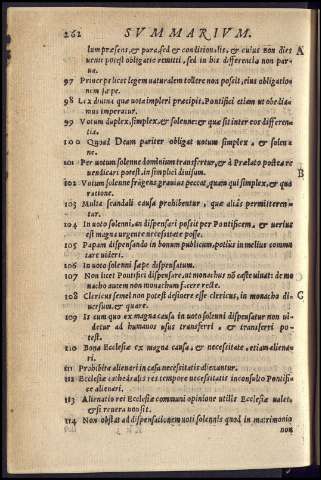 262 SVMMARIVM.
tum præsens, & pura, sed & conditionalis, & cuius non dies
uenit potest obligatio remitti, sed in his differentia non par-
ua. A
97 Princeps licet legem naturalem tollere non possit, eius obligationẽ
nem sæpe.
98 Lex diuina quæ uota impleri præcipit, Pontifici etiam ut obedia-
mus imperatur.
99 Votum duplex, simplex, & solenne: & quæ sit inter eos differen-
tia.
100 Quod Deum pariter obligat uotum simplex, & solem-
ne.
101 Per uotum solenne dominium transfertur, & à Prælato postea re
uendicari potest, in simplici diuisum. B
102 Votum solenne frãgens grauius peccat, quam qui simplex, & qua
ratione.
103 Multa scandali causa prohibentur, quæ aliàs permitteren-
tur.
104 In uoto solenni, an dispensari possit per Pontificem, & uerius
est magna urgente necessitate posse.
105 Papam dispensando in bonum publicum, potius in melius commu
tare uideri.
106 In uoto solenni sæpe dispensatum.
107 Non licet Pontifici dispensare, ut monachus nõ castè uiuat: de mo
nacho autem non monachum facere recte.
108 Clericus semel non potest desinere esse clericus, in monacho di- C
uersum, & quare.
109 Is cum quo ex magna causa in uoto solenni dispensatur non ui-
detur ad humanos usus transferri, & transferri po-
test.
110 Bona Ecclesiæ ex magna causa, & necessitate, etiam aliena-
ri.
111 Prohibita alienari in casu necessitatis alienantur.
112 Ecclesiæ cathedralis res tempore necessitatis inconsulto Pontifi-
ce alienari.
113 Alienatio rei Ecclesiæ communi opinione utilis Ecclesiæ ualet,
& si reuera non sit.
114 Non obstat ad dispensationem uoti solennis quod in matrimonio
non